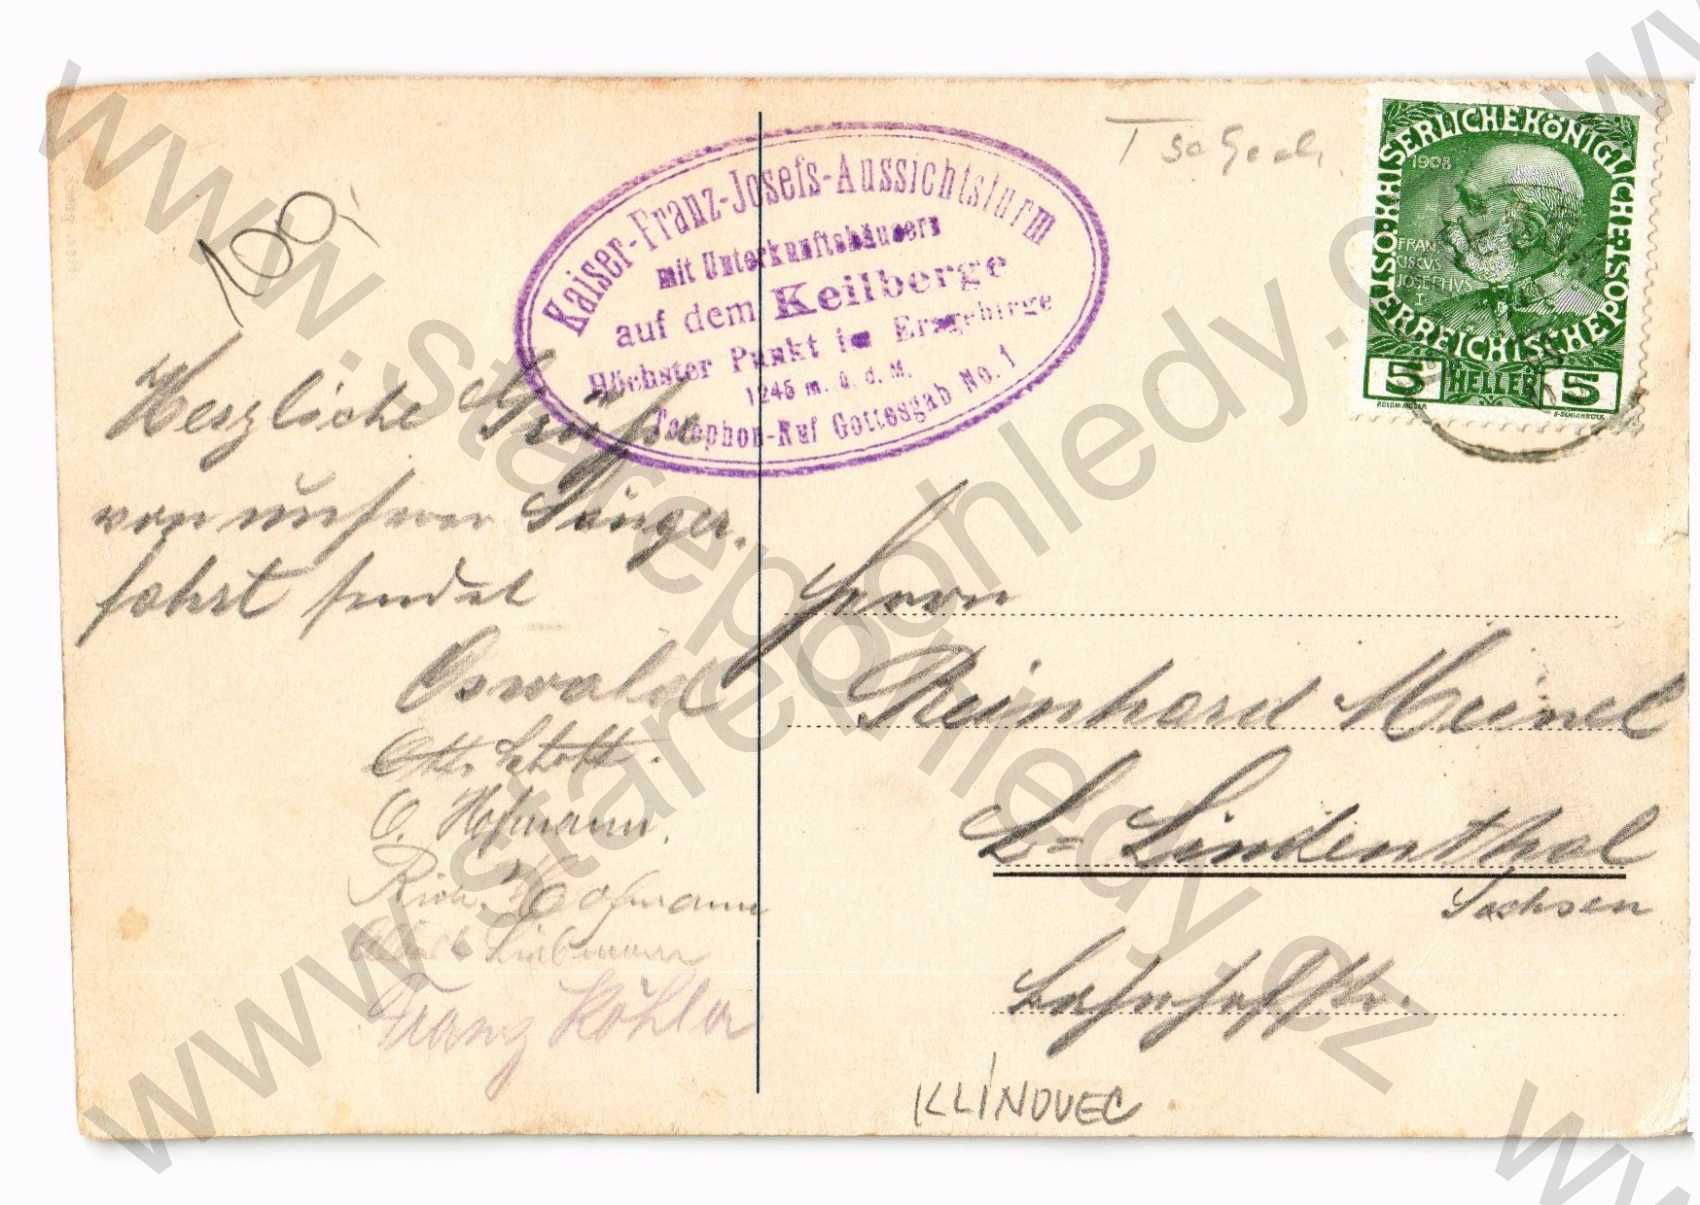 100,
Tschech.
Kaiser-Franz-Josefs-Aussichtsturm
mit Unterkunftshäusern
auf dem Keilberge
Höchster Punkt im Erzgebirge
1245 m. ü. d. M.
Telephon-Ruf Gottesgab No. 1
KAISERLICHE KÖNIGLICHE ÖSTERREICHISCHE POST
1908
FRAN
CISCVS
IOSEPHVS
I.
5 HELLER 5
Herzliche Grüße
von unserer Sänger-
fahrt sendet
Oswald
Otto Schott.
O. Hofmann.
Rich. Hofmann
Liebmann
Franz Köhler
Herrn
Reinhard Meinel
L= Lindenthal
Sachsen
Bahnhofstr.
KLÍNOVEC
www.starepohledy.cz
www.starepohledy.cz